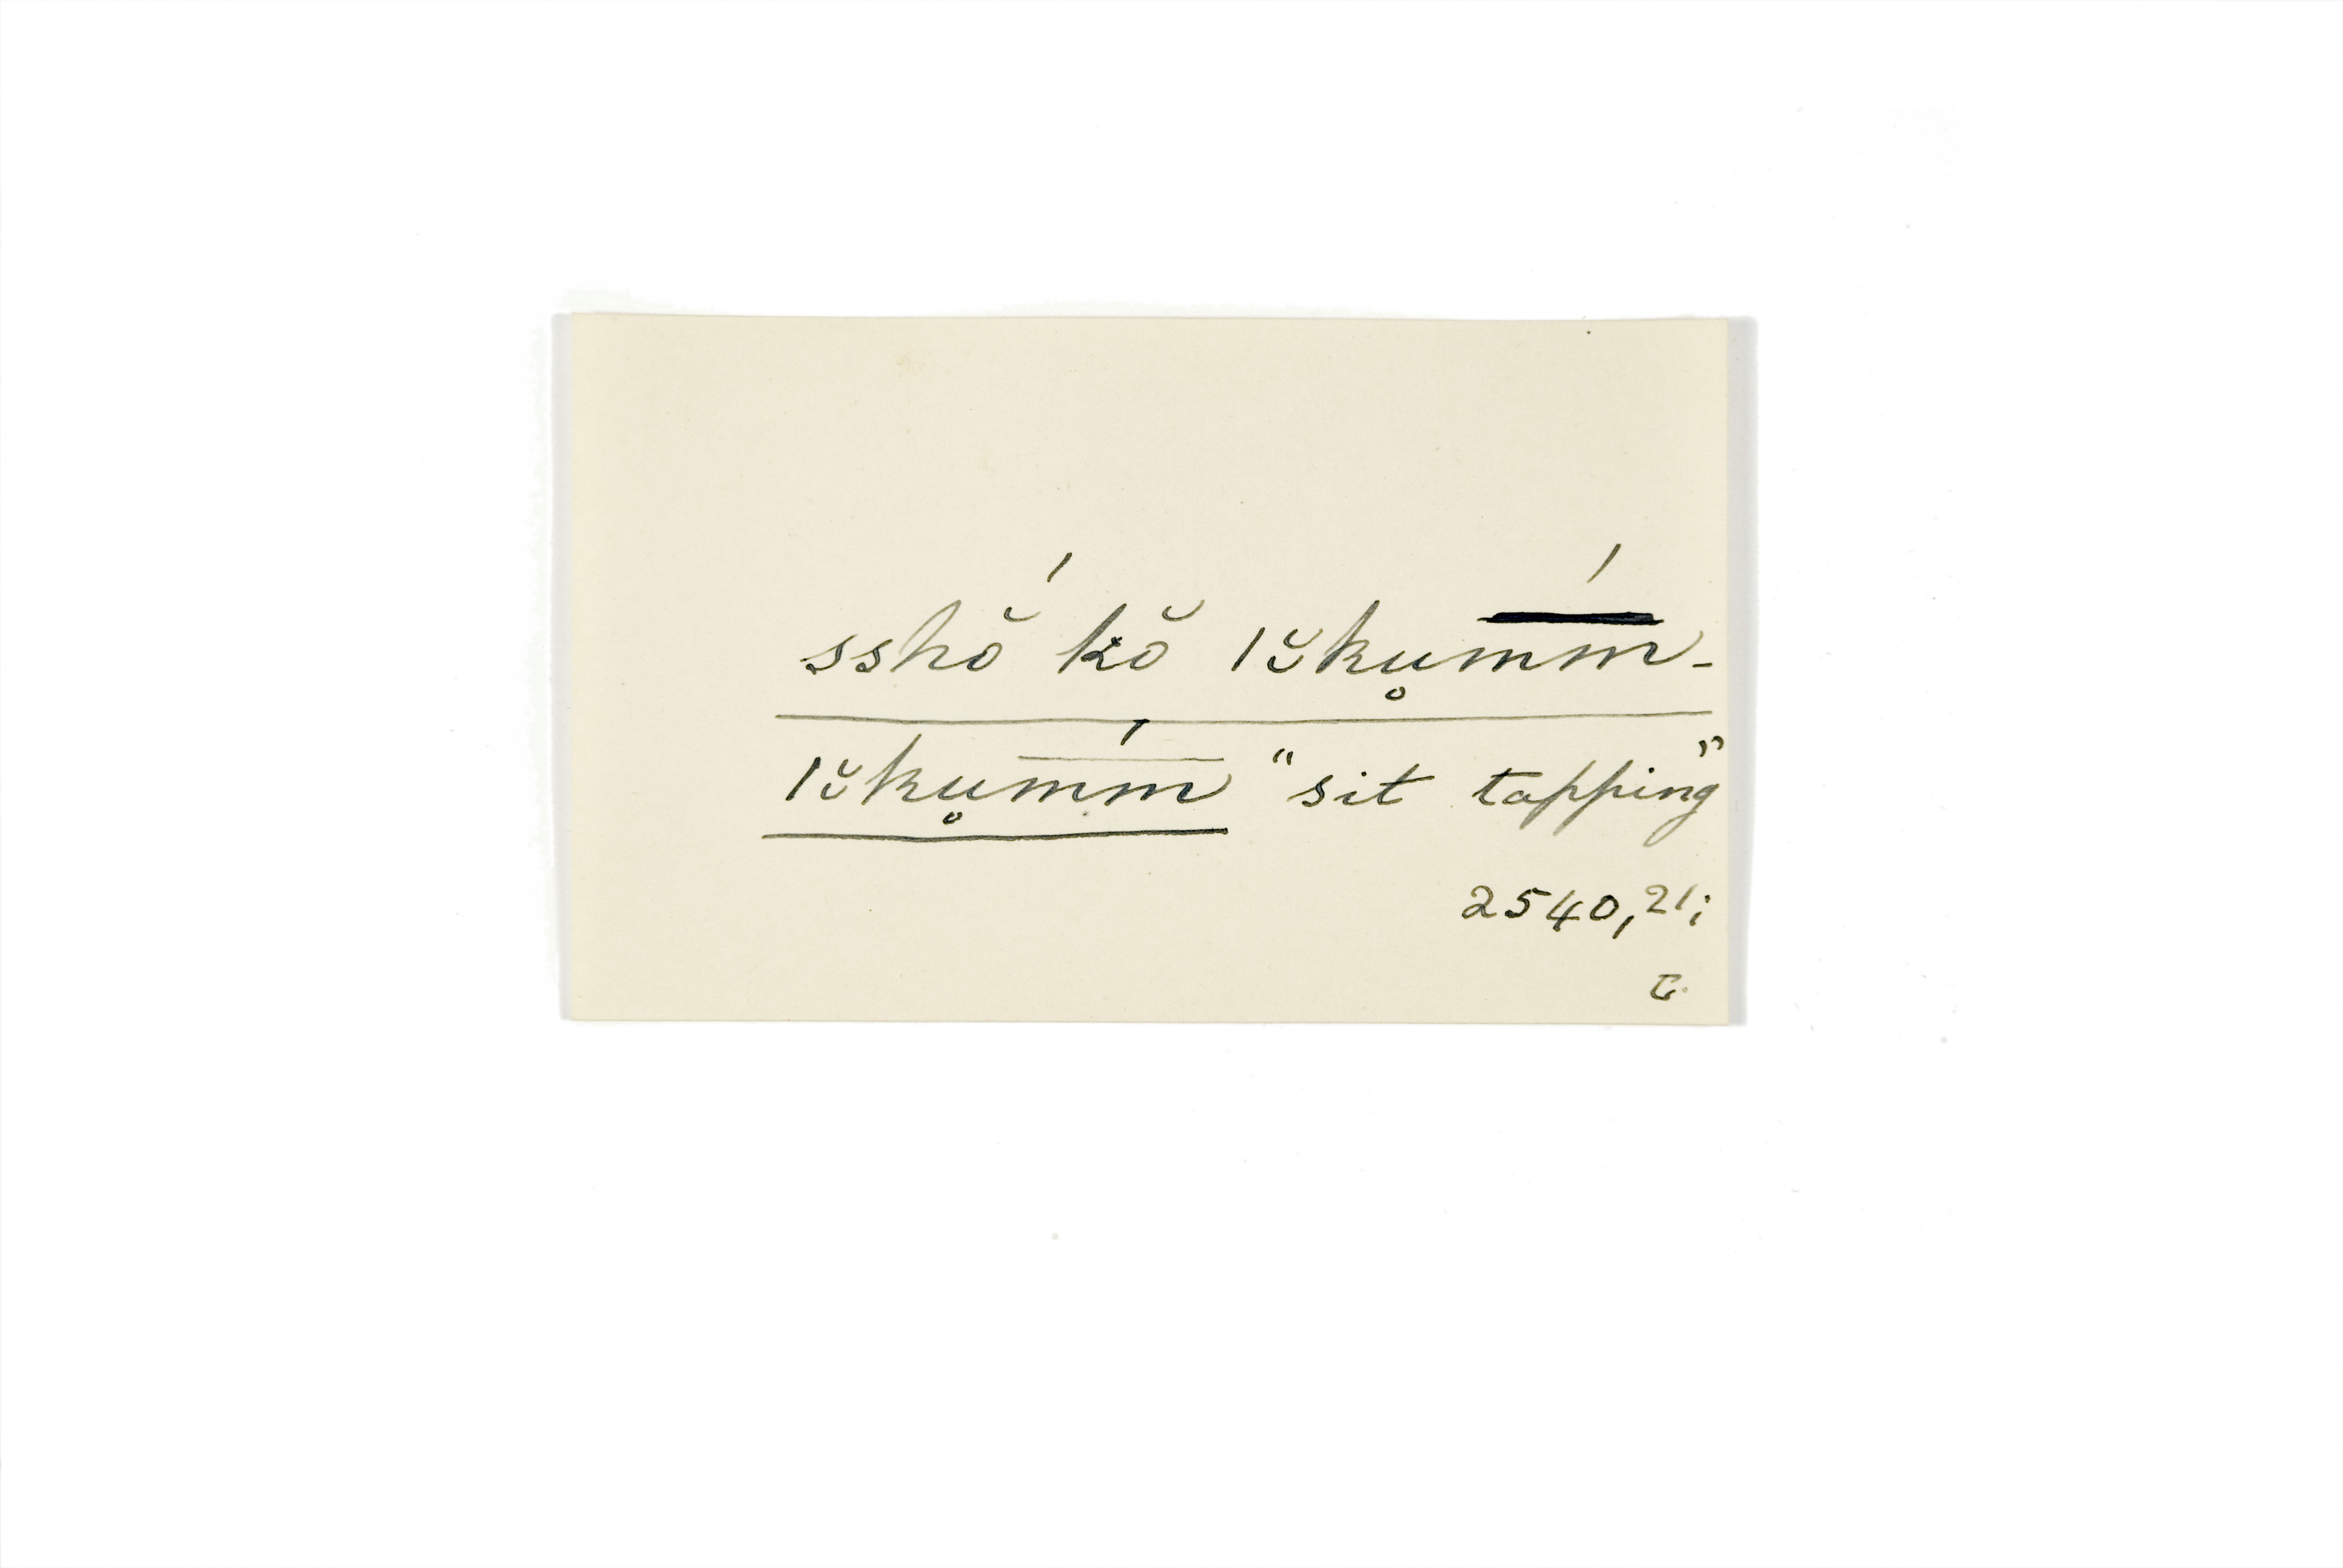 sshŏ́ kŏ ǀkụ̆m̄́m̄-
ǀkụ̆m̄́m̄ "sit tapping"
2540, 21;